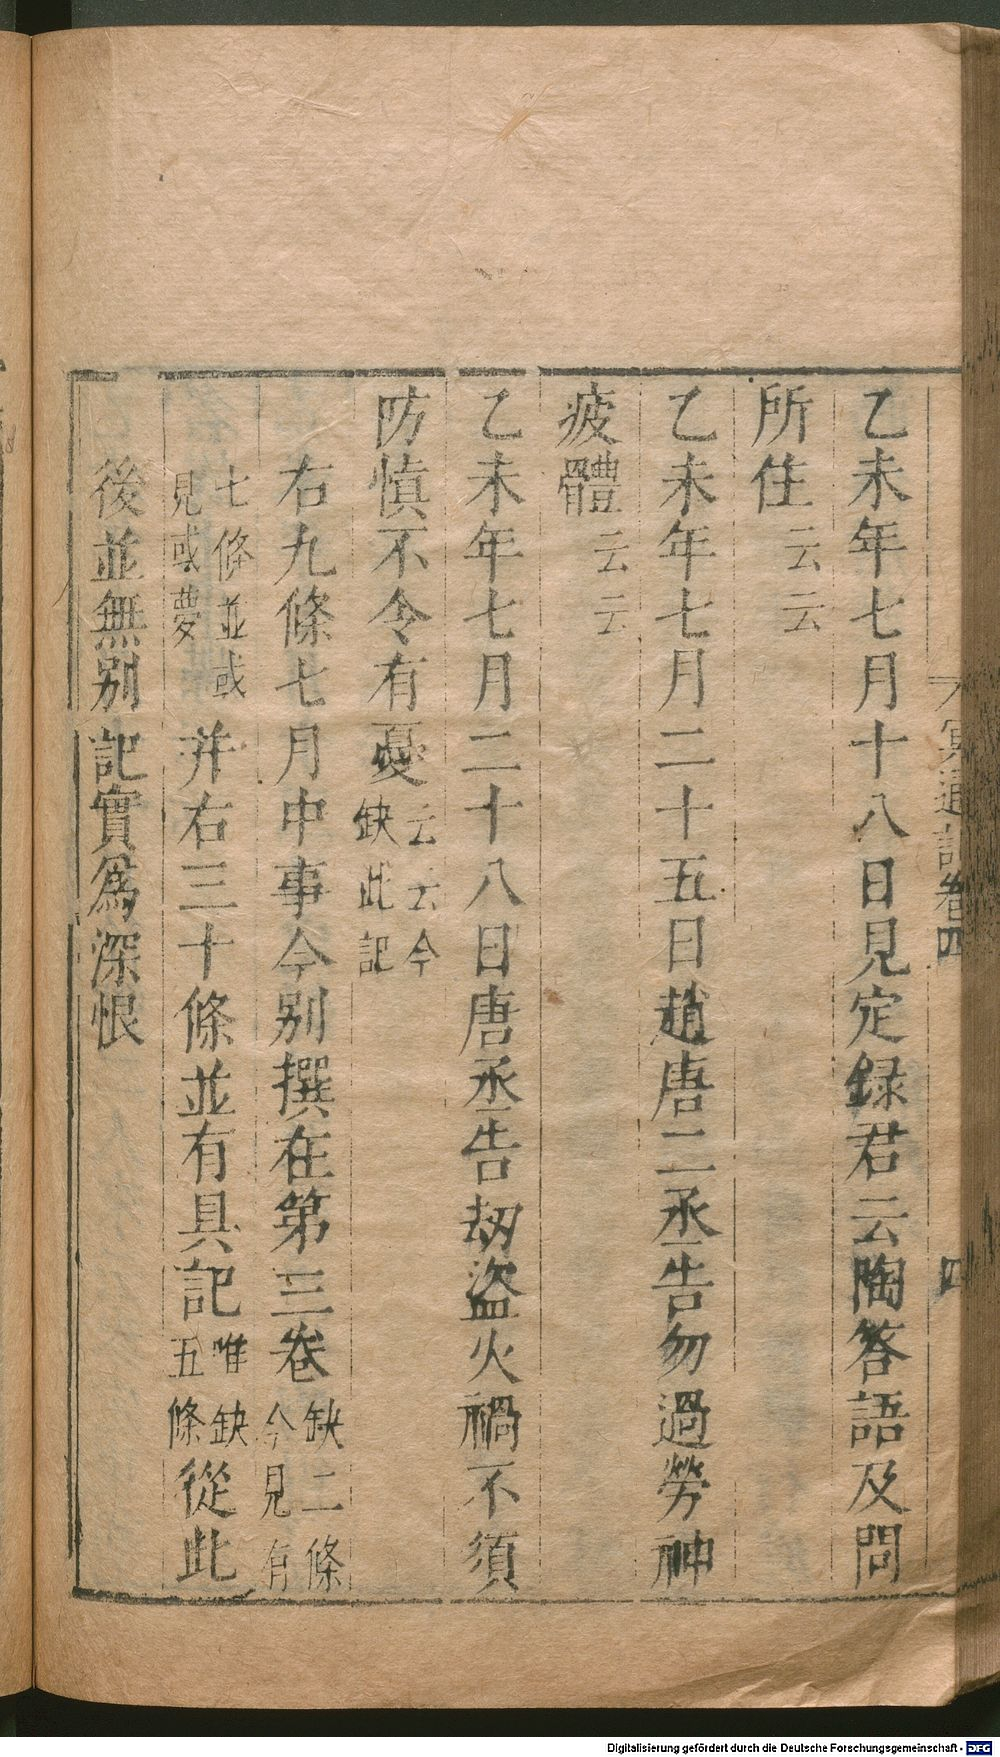 冥通記卷四
四
乙未年七月十八日見定録君云陶答語及問
所住云云
乙未年七月二十五日趙唐二丞告勿過勞神
疲體云云
乙未年七月二十八日唐丞告劫盜火禍不須
防慎不令有憂云云今缺此記
右九條七月中事今別撰在第三卷缺二條今見有
七條並或見或夢并右三十條並有具記唯缺五條從此
後並無別記實為深恨
Digitalisierung gefördert durch die Deutsche Forschungsgemeinschaft - DFG